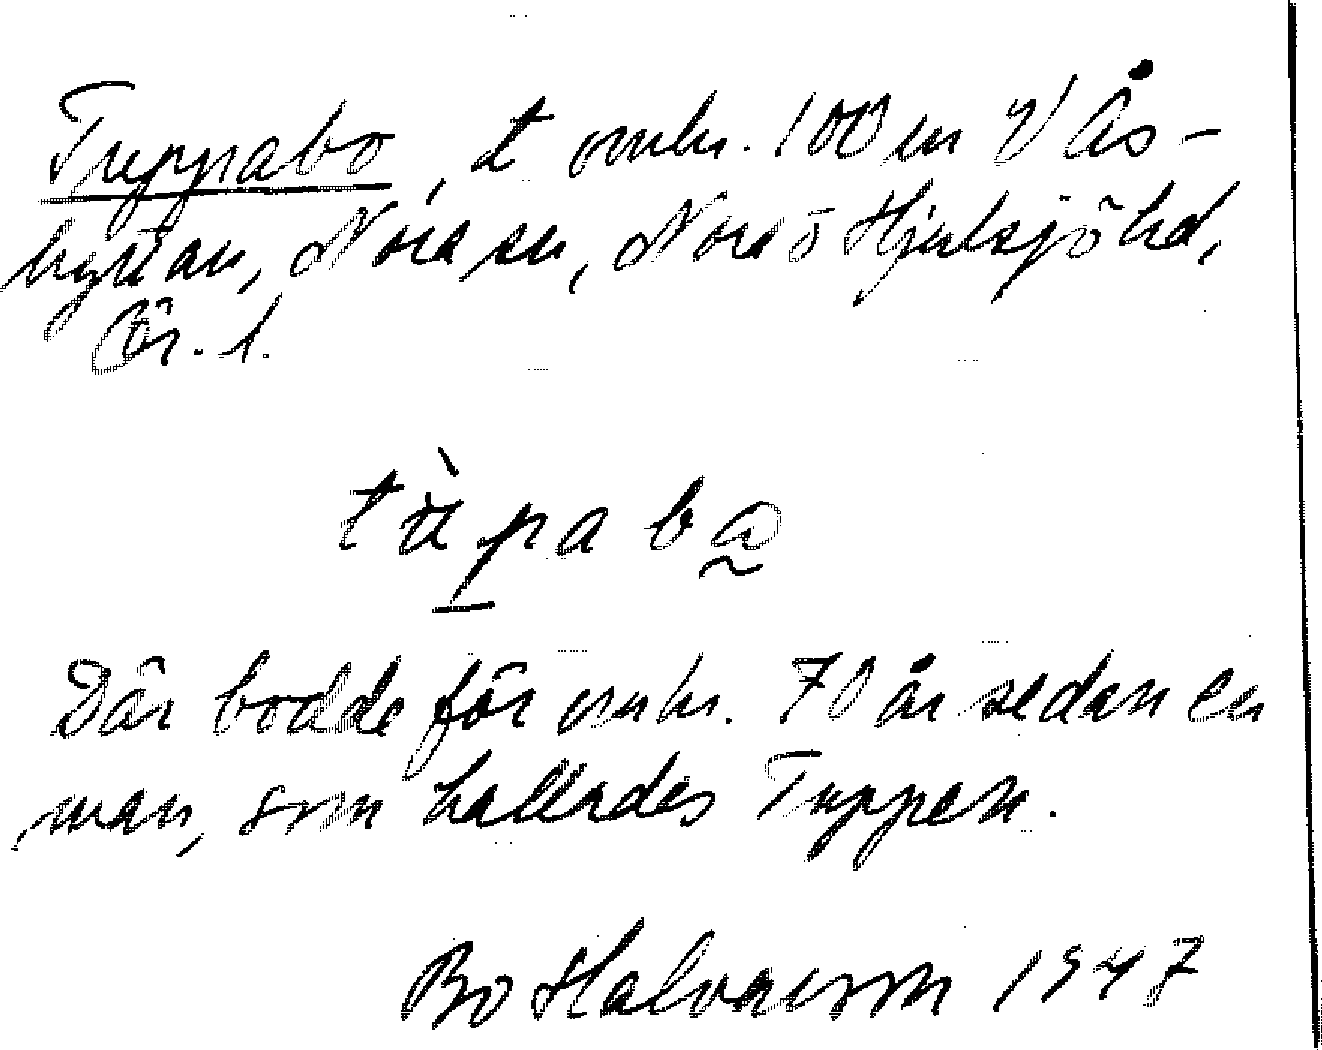 Tuppabo, t omkr. 100 m V Ås-
hyttan, Nora sn, Nora o Hjulsjö hd,
Ör. l.
tùpabω
Där bodde för omkr. 70 år sedan en
man, som kallades Tuppen.
Bo Halvarsson 1947